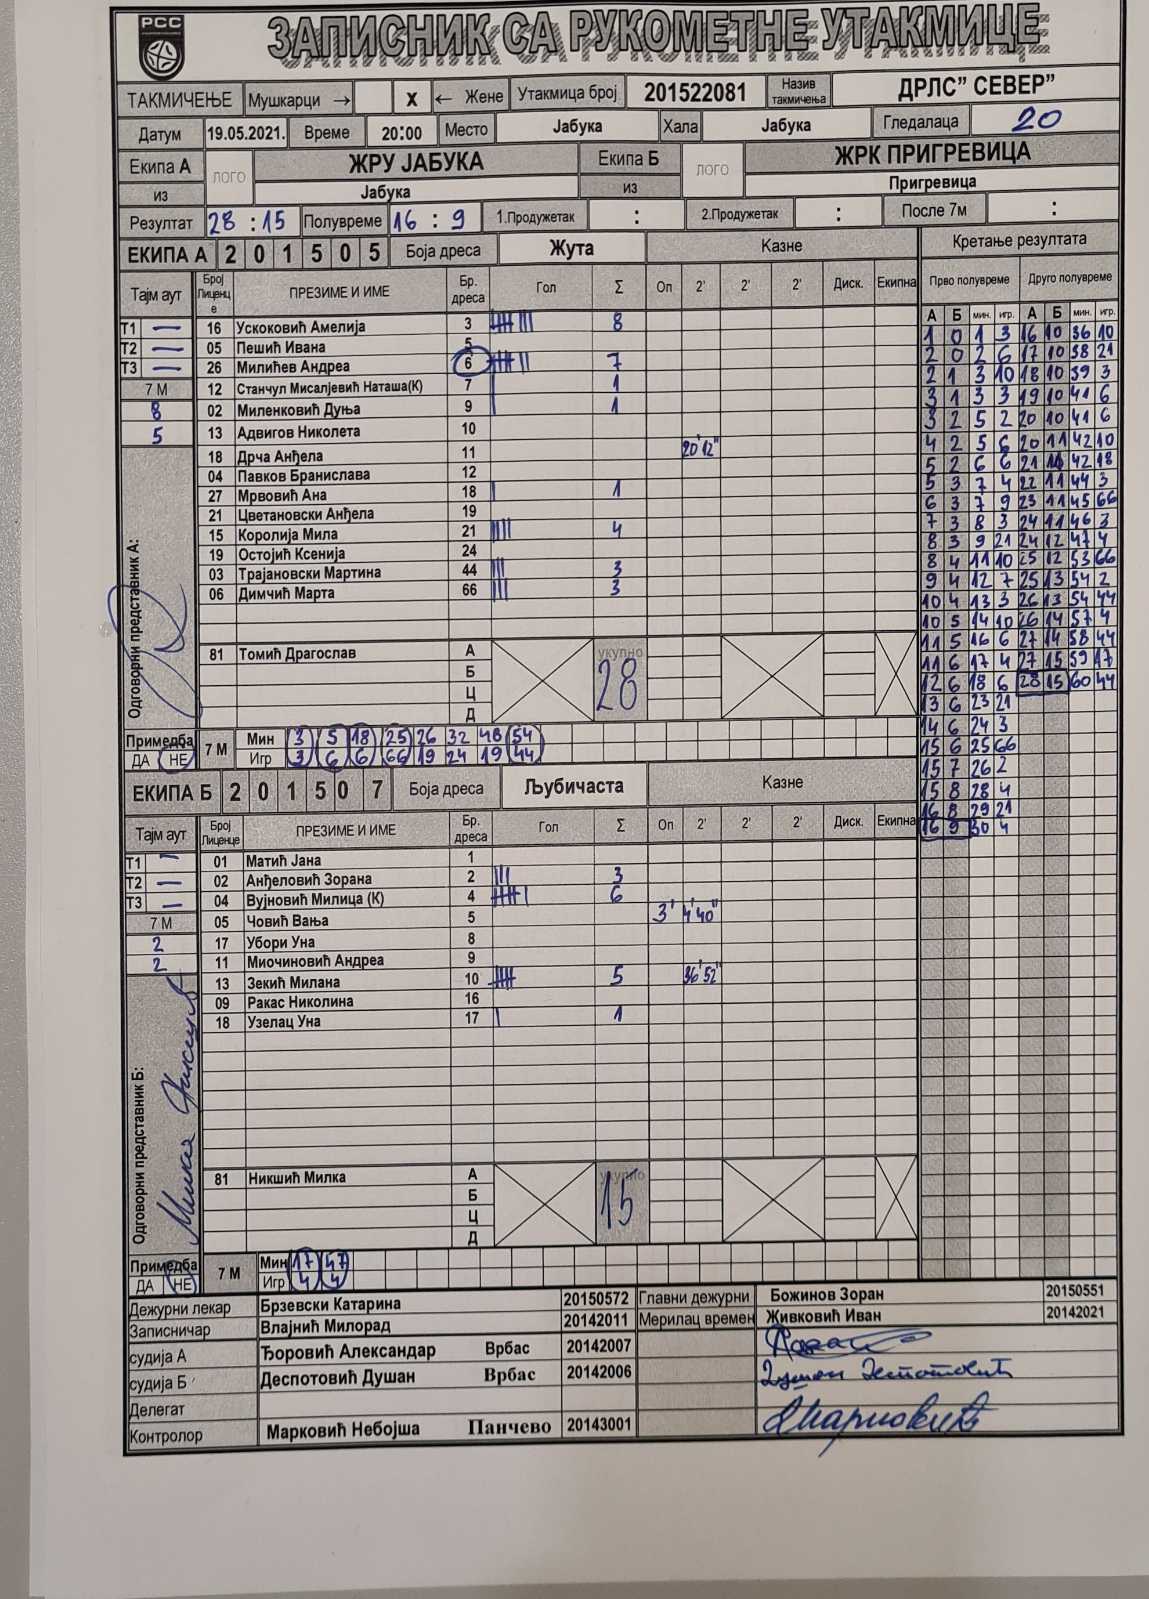 РСС
ЗАПИСНИК СА РУКОМЕТНЕ УТАКМИЦЕ
ТАКМИЧЕЊЕ Мушкарци → X ← Жене Утакмица број 201522081 Назив такмичења ДРЛС" СЕВЕР"
Датум 19.05.2021. Време 20:00 Место Јабука Хала Јабука Гледалаца 20
Екипа А ЛОГО ЖРУ ЈАБУКА Екипа Б ЛОГО ЖРК ПРИГРЕВИЦА
из Јабука из Пригревица
Резултат 28 : 15 Полувреме 16 : 9 1.Продужетак : 2.Продужетак : После 7м :
ЕКИПА А 2 0 1 5 0 5 Боја дреса Жута Казне Кретање резултата
Тајм аут Број Лиценце ПРЕЗИМЕ И ИМЕ Бр. дреса Гол Σ Оп 2' 2' 2' Диск. Екипна Прво полувреме Друго полувреме
А Б мин. игр. А Б мин. игр.
Т1 — 16 Ускоковић Амелија 3 8
Т2 — 05 Пешић Ивана 5
Т3 — 26 Милићев Андреа 6 7
7 М 12 Станчул Мисалјевић Наташа(К) 7 1
8 02 Миленковић Дуња 9 1
5 13 Адвигов Николета 10
18 Дрча Анђела 11 20'12"
04 Павков Бранислава 12
27 Мрвовић Ана 18 1
21 Цветановски Анђела 19
15 Королија Мила 21 4
19 Остојић Ксенија 24
03 Трајановски Мартина 44 3
06 Димчић Марта 66 3
Одговорни представник А:
81 Томић Драгослав А укупно 28
Б
Ц
Д
Примедба ДА НЕ
7 М Мин 3 5 18 25 26 32 48 54
Игр 3 6 6 66 19 24 19 44
1 0 1 3 16 10 36 10
2 0 2 6 17 10 38 21
2 1 3 10 18 10 39 3
3 1 3 3 19 10 41 6
3 2 5 2 20 10 41 6
4 2 5 6 20 11 42 10
5 2 6 6 21 11 42 18
5 3 7 4 22 11 44 3
6 3 7 9 23 11 45 66
7 3 8 3 24 11 46 3
8 3 9 21 24 12 47 4
8 4 11 10 25 12 53 66
9 4 12 7 25 13 54 2
10 4 13 3 26 13 54 44
10 5 14 10 26 14 57 4
11 5 16 6 27 14 58 44
11 6 17 4 27 15 59 17
12 6 18 6 28 15 60 44
13 6 23 21
14 6 24 3
15 6 25 66
15 7 26 2
15 8 28 4
16 8 29 21
16 9 30 4
ЕКИПА Б 2 0 1 5 0 7 Боја дреса Љубичаста Казне
Тајм аут Број Лиценце ПРЕЗИМЕ И ИМЕ Бр. дреса Гол Σ Оп 2' 2' 2' Диск. Екипна
Т1 — 01 Матић Јана 1
Т2 — 02 Анђеловић Зорана 2 3
Т3 — 04 Вујновић Милица (К) 4 6
7 М 05 Човић Вања 5 3' 4'40"
2 17 Убори Уна 8
2 11 Миочиновић Андреа 9
13 Зекић Милана 10 5 36'52"
09 Ракас Николина 16
18 Узелац Уна 17 1
Одговорни представник Б:
81 Никшић Милка А укупно 15
Б
Ц
Д
Примедба ДА НЕ
7 М Мин 17 47
Игр 4 4
Дежурни лекар Брзевски Катарина 20150572 Главни дежурни Божинов Зоран 20150551
Записничар Влајнић Милорад 20142011 Мерилац времен Живковић Иван 20142021
судија А Ђоровић Александар Врбас 20142007
судија Б Деспотовић Душан Врбас 20142006 Душан Деспотовић
Делегат
Контролор Марковић Небојша Панчево 20143001